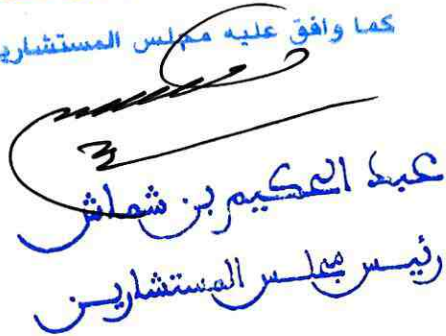 كما وافق عليه مجلس المستشارين
عبد الحكيم بن شماش
رئيس مجلس المستشارين